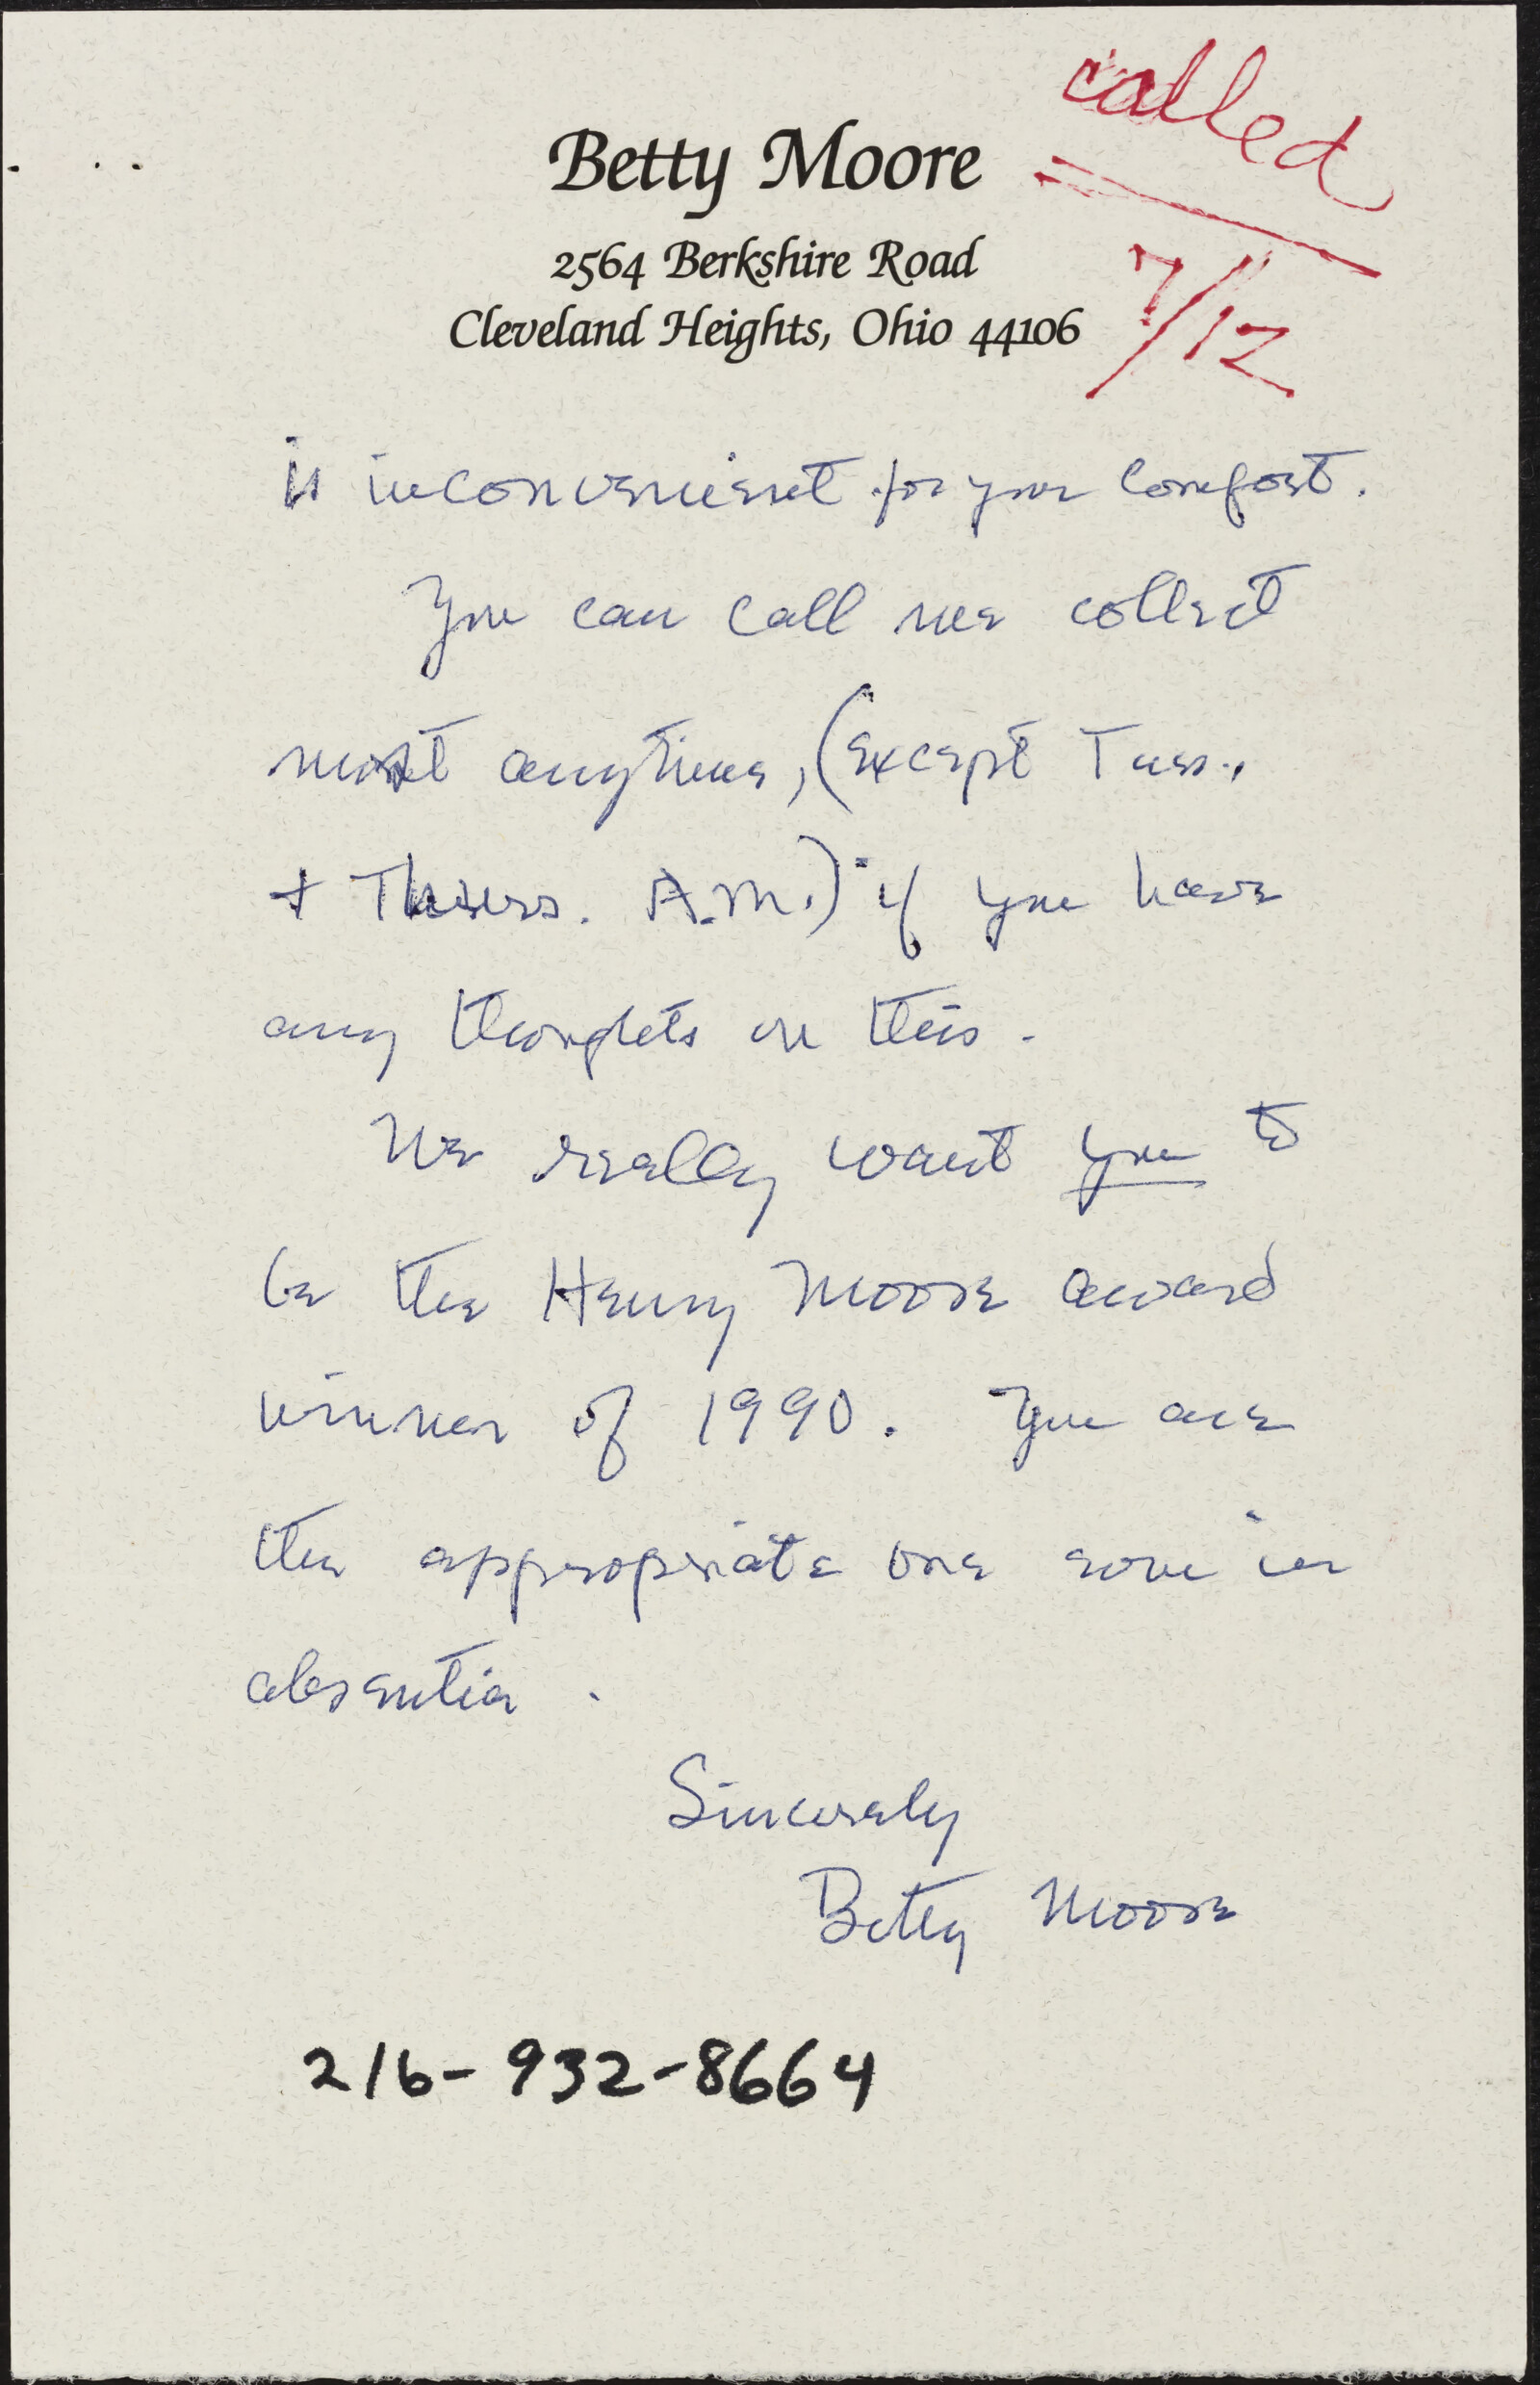 called
7/12
Betty Moore
2564 Berkshire Road
Cleveland Heights, Ohio 44106
is inconvenient for your comfort.
You can call me collect
most anytime, (except Tues.,
+ Thurs. A.M.) if you have
any thoughts on this.
We really want you to
be the Henry Moore award
winner of 1990. You are
the appropriate one even in
absentia.
Sincerely
Betty Moore
216-932-8664